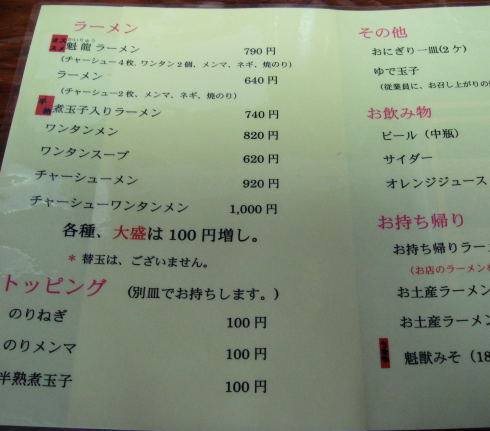 ラーメン
オススメ
かいりゅう
魁龍ラーメン 790円
(チャーシュー4枚, ワンタン2個、メンマ、ネギ、焼のり)
ラーメン 640円
(チャーシュー2枚、メンマ、ネギ、焼のり)
半熟 煮玉子入りラーメン 740円
ワンタンメン 820円
ワンタンスープ 620円
チャーシューメン 920円
チャーシューワンタンメン 1,000円
各種、大盛は100円増し。
* 替玉は、ございません。
トッピング (別皿でお持ちします。)
のりねぎ 100円
のりメンマ 100円
半熟煮玉子 100円
その他
おにぎり一皿(2ケ)
ゆで玉子
(従業員に、お召し上がりの
お飲み物
ビール(中瓶)
サイダー
オレンジジュース
お持ち帰り
お持ち帰りラー
(お店のラーメン
お土産ラーメン
お土産ラーメン
魁獣みそ(18